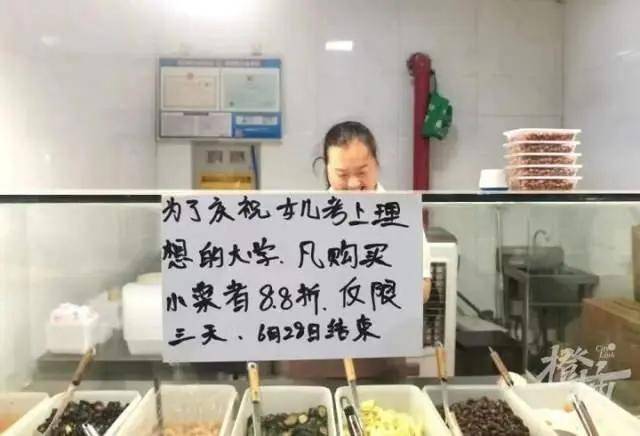 为了庆祝女儿考上理
想的大学.凡购买
小菜者8.8折.仅限
三天、6月29日结束
City Link
橙柿